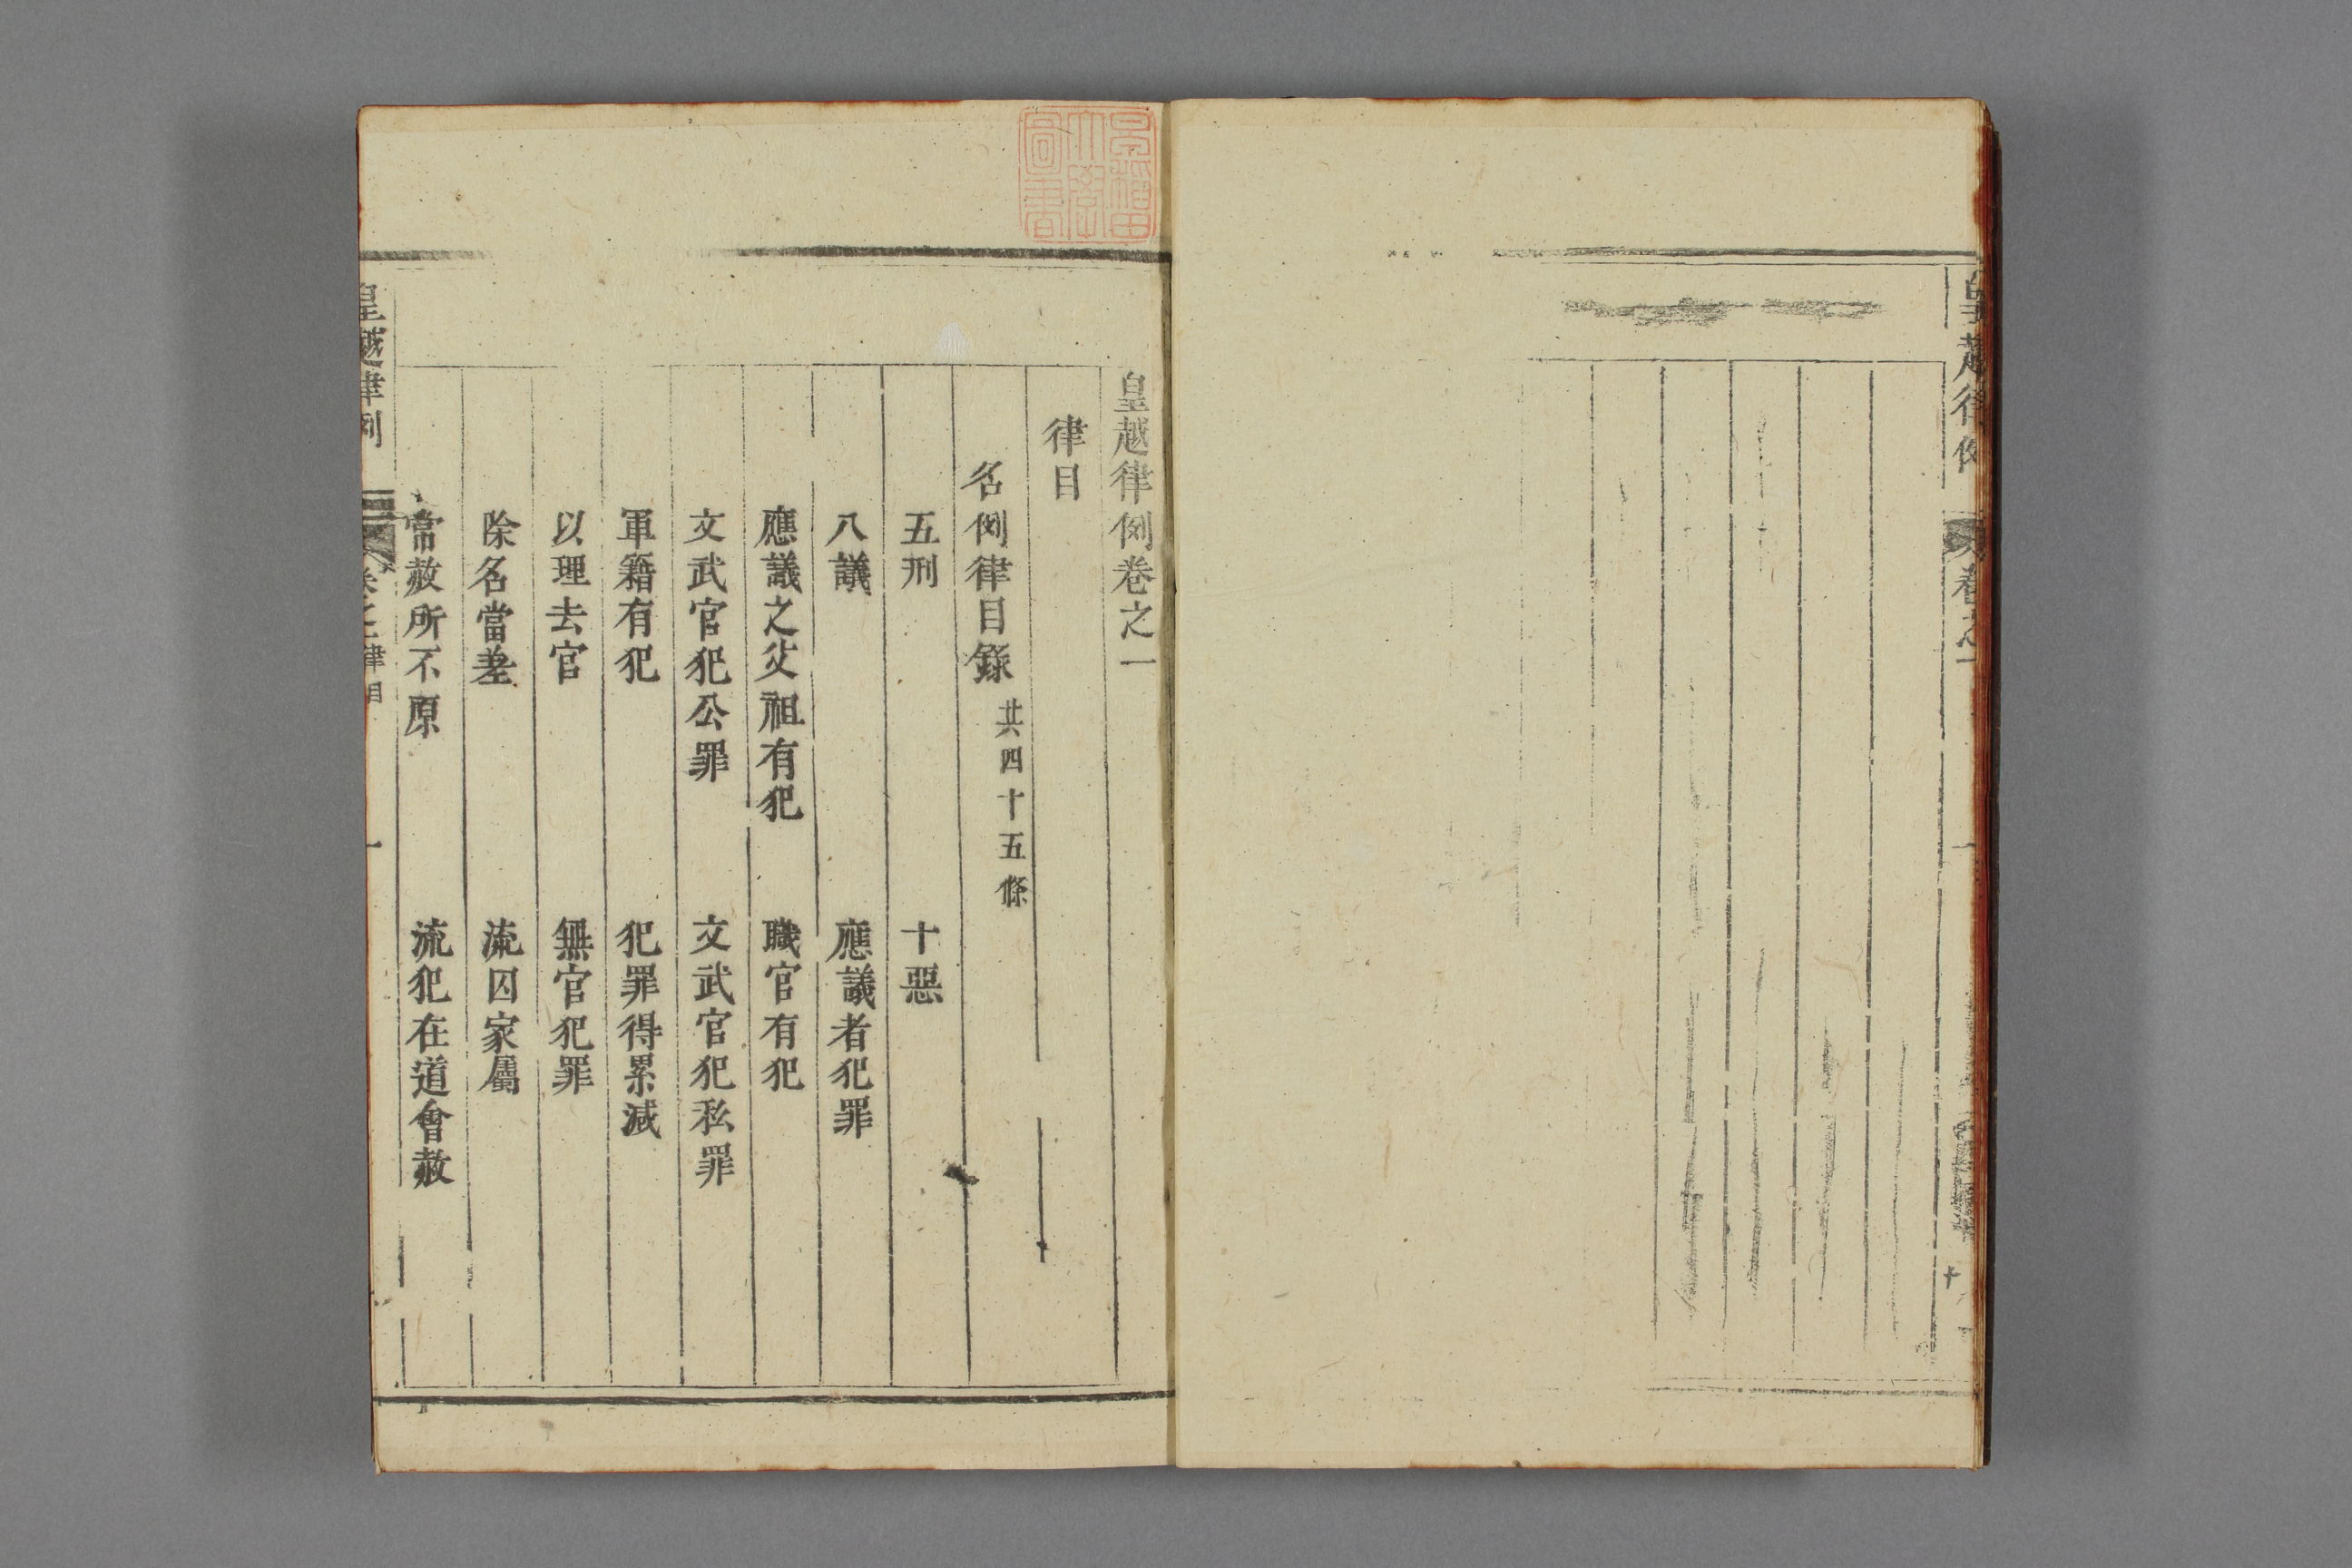 皇越律例
卷之一
一
早稻田大學圖書
皇越律例卷之一
律目
名例律目錄 共四十五條
五刑 十惡
八議 應議者犯罪
應議之父祖有犯 職官有犯
文武官犯公罪 文武官犯私罪
軍籍有犯 犯罪得累減
以理去官 無官犯罪
除名當差 流囚家屬
常赦所不原 流犯在道會赦
皇越律例
卷之一律目
一